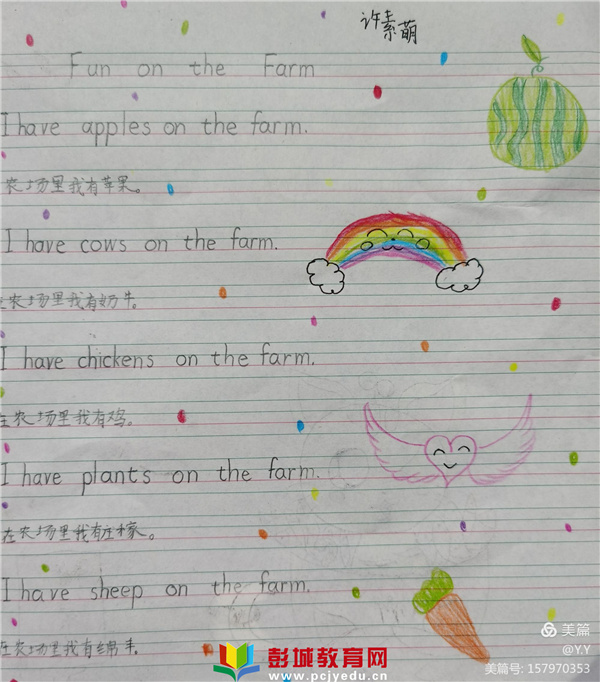 许素萌
Fun on the Farm
I have apples on the farm.
农场里我有苹果。
I have cows on the farm.
在农场里我有奶牛。
I have chickens on the farm.
在农场里我有鸡。
I have plants on the farm.
在农场里我有庄稼。
I have sheep on the farm.
在农场里我有绵羊。
美篇
@Y.Y
美篇号: 157970353
彭城教育网
www.pcjyedu.cn